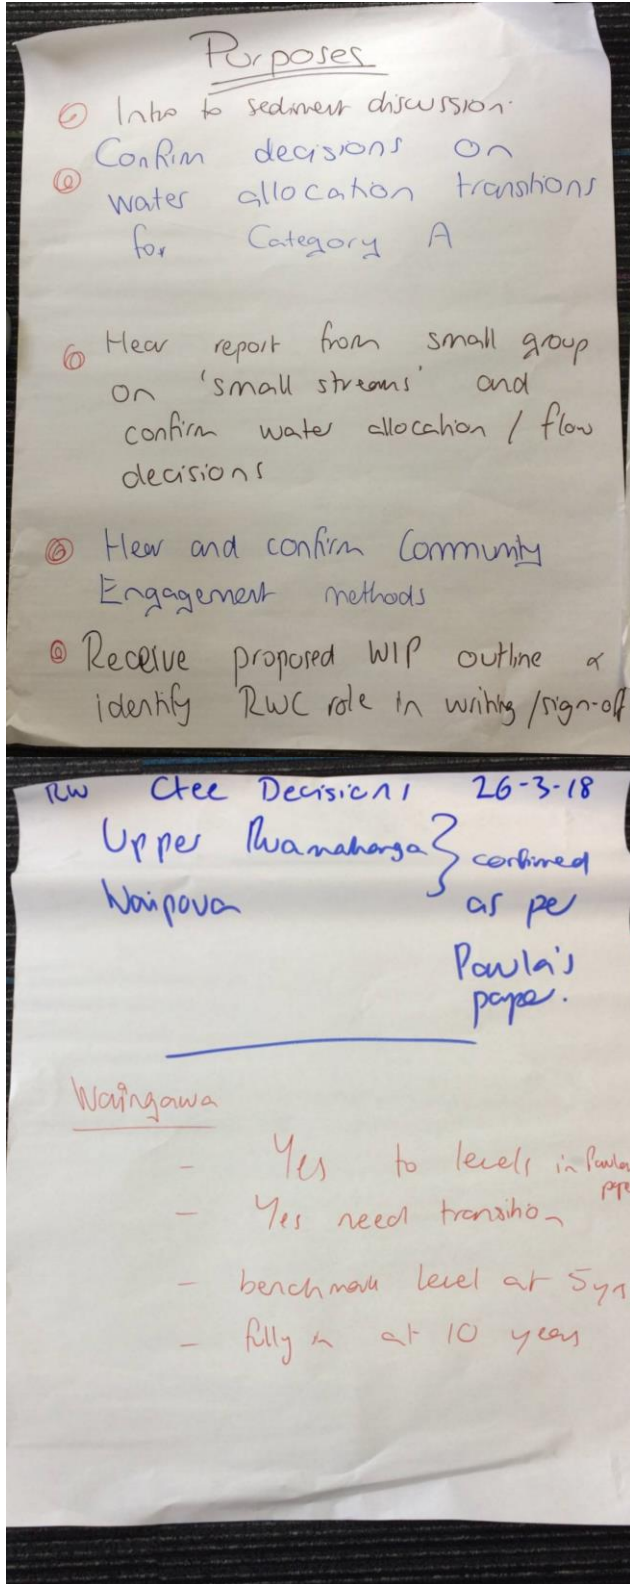 Purposes
Intro to sediment discussion.
Confirm decisions on
water allocation transitions
for Category A
Hear report from small group
on 'small streams' and
confirm water allocation / flow
decisions
Hear and confirm Community
Engagement methods
Receive proposed WIP outline &
identify RWC role in writing/sign-off
RW Ctee Decisions 26-3-18
Upper Ruamahanga } confirmed
Waipoua as per
Paula's
paper.
Waingawa
- Yes to levels in Paulas
paper
- Yes need transition
- benchmark level at 5yrs
- fully in at 10 years